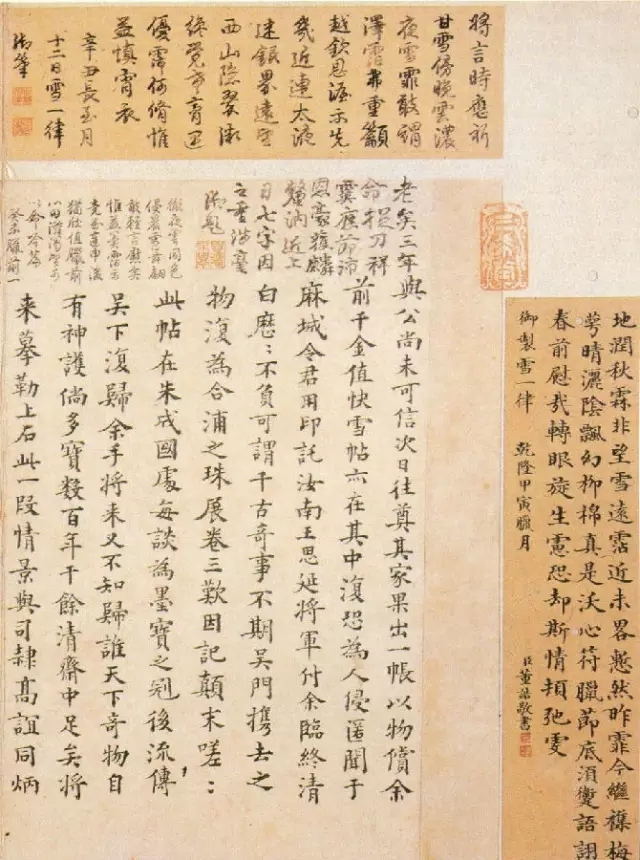 地潤秋霖非望雪遠霑近未畧愁然昨霏今繼襍梅
萼晴灑陰飄幻柳棉真是沃心符臘節底須語詡
春前慰我轉眼旋生恐却斯情頻弛雯
御製雪一律 乾隆甲寅臘月
臣董誥敬書
將言時應祈
甘雪傍晚雲濃
夜雪霏敢謂
澤霑弗重籲
越欽恩渥示先
幾近連太液
迷銀界遠望
西山隱翠微
終覺育運
優霈何脩惟
益慎宵衣
辛丑長至月
十二日雪一律
御筆
老矣三年
命捉刀祥
霙應節沛
恩豪獲麟
近上
日七字因
之重濡毫
御題
徹夜雲同色
優農雪舞翩
敢輕言慰矣
惟益霑云
竟連申後
猶欣值臘前
吟篇
癸未臘前一
與公尚未可信次日往奠其家果出一帳以物償余
前千金值快雪帖亦在其中復恐為人侵匿聞于
麻城令君用印託汝南王思延將軍付余臨終清
白歷:不負可謂千古奇事不期吳門攜去之
物復為合浦之珠展卷三歎因記顛末嗟:
此帖在朱成國處每談為墨寶之冠後流傳
吳下復歸余手將来又不知歸誰天下奇物自
有神護倘多寶數百年于餘清齋中足矣將
来摹勒上石此一段情景與司隸高誼同炳